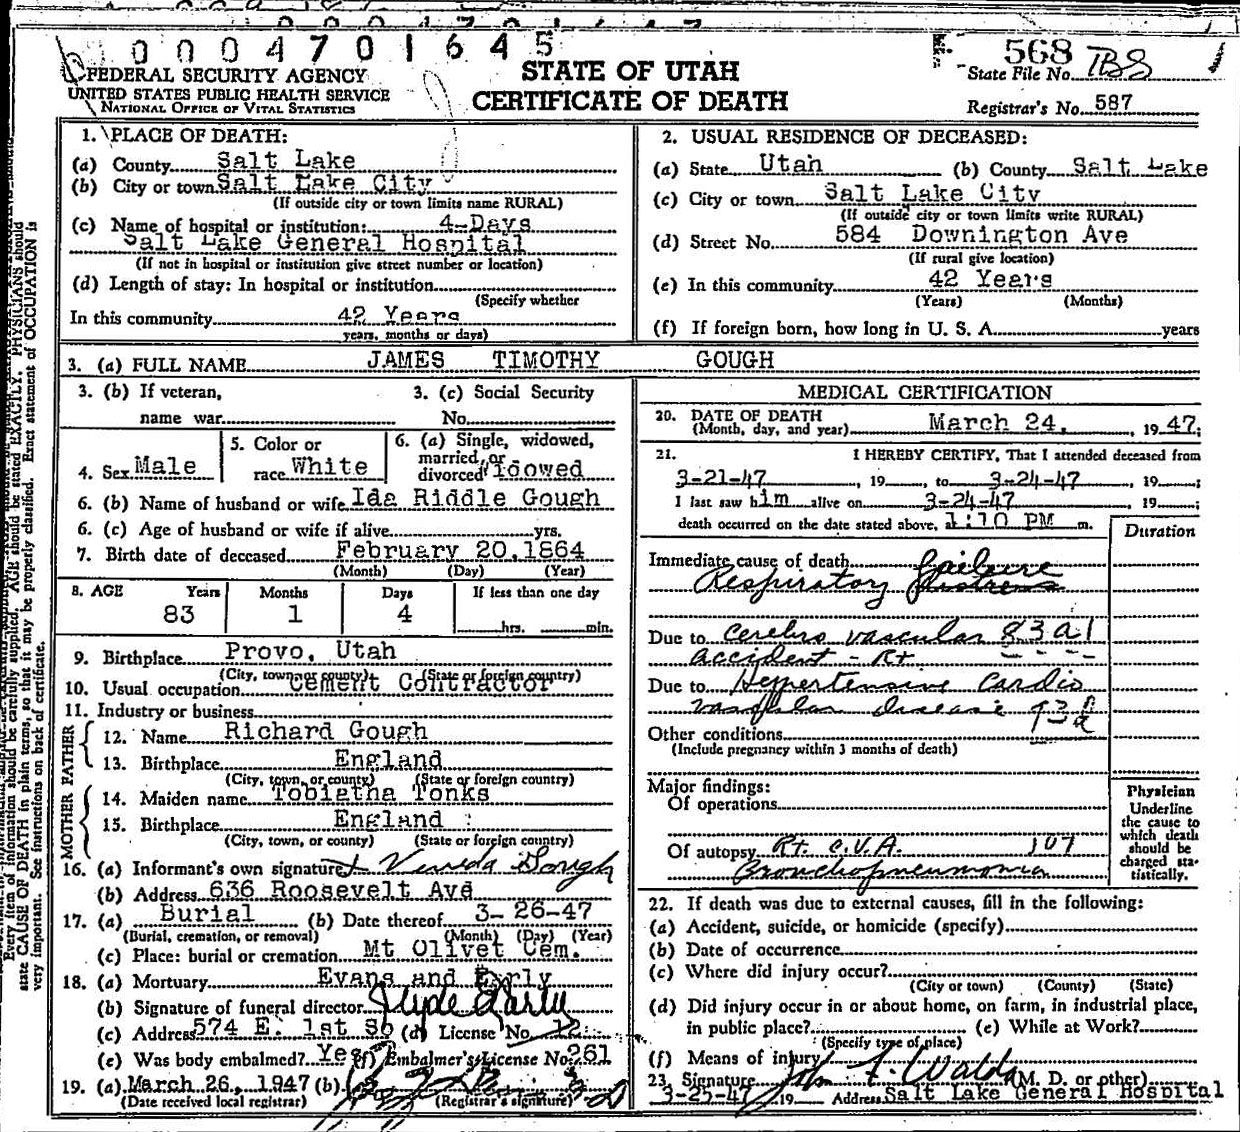 0004701645
FEDERAL SECURITY AGENCY
UNITED STATES PUBLIC HEALTH SERVICE
NATIONAL OFFICE OF VITAL STATISTICS
STATE OF UTAH
CERTIFICATE OF DEATH
568
State File No. TBS
Registrar's No. 587
1. PLACE OF DEATH:
(a) County Salt Lake
(b) City or town Salt Lake City
(If outside city or town limits name RURAL)
(c) Name of hospital or institution: 4-Days
Salt Lake General Hospital
(If not in hospital or institution give street number or location)
(d) Length of stay: In hospital or institution
(Specify whether
In this community 42 Years
years, months or days)
2. USUAL RESIDENCE OF DECEASED:
(a) State Utah (b) County Salt Lake
(c) City or town Salt Lake City
(If outside city or town limits write RURAL)
(d) Street No. 584 Downington Ave
(If rural give location)
(e) In this community 42 Years
(Years) (Months)
(f) If foreign born, how long in U. S. A. years
3. (a) FULL NAME JAMES TIMOTHY GOUGH
3. (b) If veteran,
name war
3. (c) Social Security
No.
4. Sex Male
5. Color or
race White
6. (a) Single, widowed,
married, or
divorced Widowed
6. (b) Name of husband or wife Ida Riddle Gough
6. (c) Age of husband or wife if alive yrs.
7. Birth date of deceased February 20, 1864
(Month) (Day) (Year)
8. AGE Years Months Days If less than one day
83 1 4 hrs. min.
9. Birthplace Provo, Utah
(City, town, or county) (State or foreign country)
10. Usual occupation Cement Contractor
11. Industry or business
FATHER
12. Name Richard Gough
13. Birthplace England
(City, town, or county) (State or foreign country)
MOTHER
14. Maiden name Tobietha Tonks
15. Birthplace England
(City, town, or county) (State or foreign country)
16. (a) Informant's own signature Gough
(b) Address 636 Roosevelt Ave
17. (a) Burial (b) Date thereof 3-26-47
(Burial, cremation, or removal) (Month) (Day) (Year)
(c) Place: burial or cremation Mt Olivet Cem.
18. (a) Mortuary Evans and Early
(b) Signature of funeral director Clyde Early
(c) Address 574 E. 1st So (d) License No. 12
(e) Was body embalmed? Yes (f) Embalmer's License No. 261
19. (a) March 26, 1947 (b)
(Date received local registrar) (Registrar's signature)
MEDICAL CERTIFICATION
20. DATE OF DEATH
(Month, day, and year) March 24, , 19 47;
21. I HEREBY CERTIFY, That I attended deceased from
3-21-47 , 19 , to 3-24-47 , 19 ;
I last saw him alive on 3-24-47 19 ;
death occurred on the date stated above, 1:10 PM m.
Duration
Immediate cause of death failure
Respiratory distress
Due to Cerebro vascular 83 a1
accident - Rt.
Due to Hypertensive Cardio
vascular disease 93d
Other conditions
(Include pregnancy within 3 months of death)
Major findings:
Of operations
Of autopsy Rt. C.V.A. 107
Bronchopneumonia
Physician
Underline
the cause to
which death
should be
charged sta-
tistically.
22. If death was due to external causes, fill in the following:
(a) Accident, suicide, or homicide (specify)
(b) Date of occurrence
(c) Where did injury occur?
(City or town) (County) (State)
(d) Did injury occur in or about home, on farm, in industrial place,
in public place? (e) While at Work?
(Specify type of place)
(f) Means of injury
23. Signature John F. Waldo (M. D. or other)
3-25-47 19 Address Salt Lake General Hospital
Every item of information should be carefully supplied. AGE should be stated EXACTLY. PHYSICIANS should
state CAUSE OF DEATH in plain terms, so that it may be properly classified. Exact statement of OCCUPATION is
very important. See instructions on back of certificate.